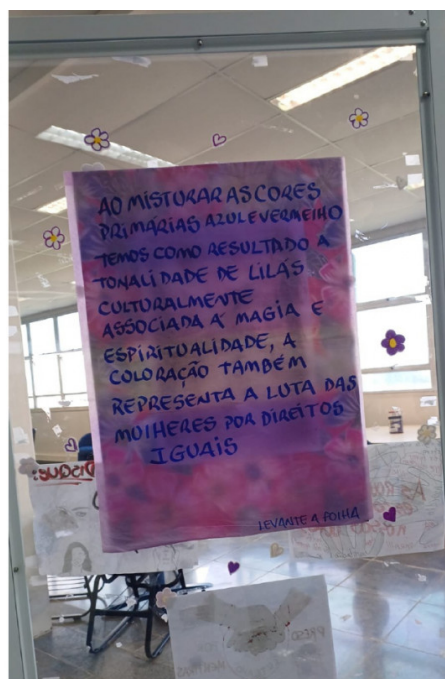 AO MISTURAR AS CORES
PRIMÁRIAS AZUL E VERMELHO
TEMOS COMO RESULTADO A
TONALIDADE DE LILÁS.
CULTURALMENTE
ASSOCIADA A' MAGIA E
ESPIRITUALIDADE, A
COLORAÇÃO TAMBÉM
REPRESENTA A LUTA DAS
MULHERES POR DIREITOS
IGUAIS
LEVANTE A FOLHA
DISQUE: